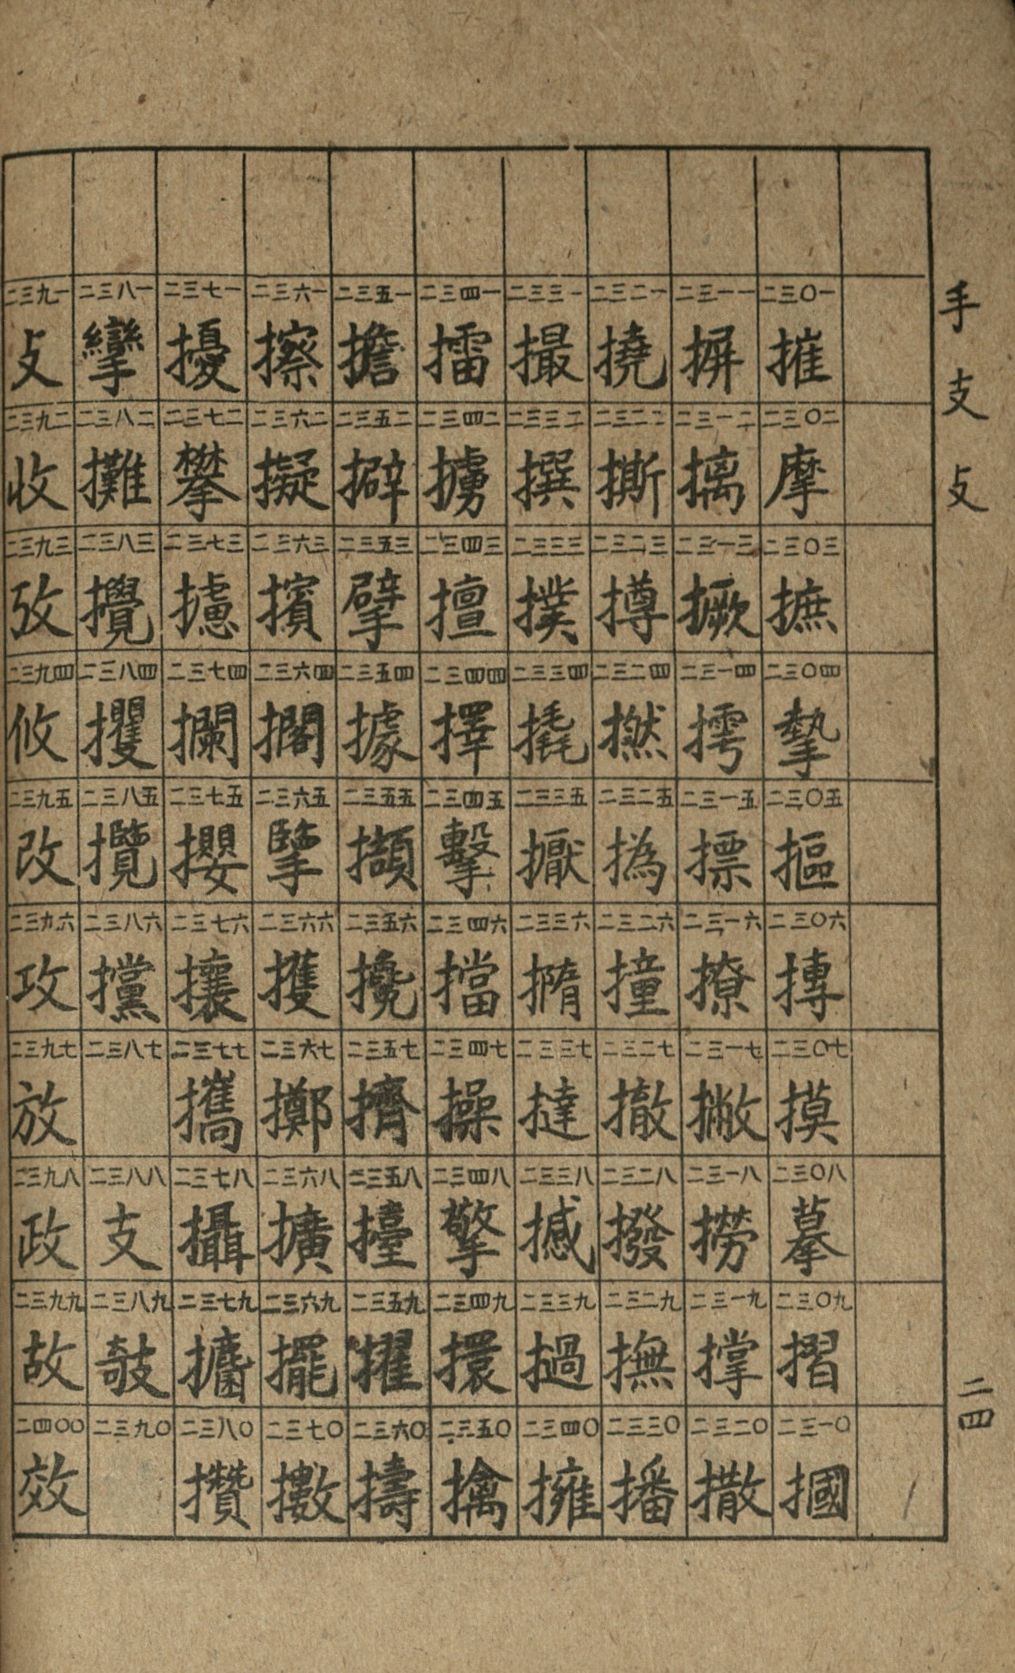 手 支 攴
二三〇一 摧 二三〇二 摩 二三〇三 摭 二三〇四 摯 二三〇五 摳 二三〇六 摶 二三〇七 摸 二三〇八 摹 二三〇九 摺 二三一〇 摑
二三一一 摒 二三一二 摛 二三一三 撅 二三一四 摴 二三一五 摽 二三一六 撩 二三一七 撇 二三一八 撈 二三一九 撑 二三二〇 撒
二三二一 撓 二三二二 撕 二三二三 撙 二三二四 撚 二三二五 撝 二三二六 撞 二三二七 撤 二三二八 撥 二三二九 撫 二三三〇 播
二三三一 撮 二三三二 撰 二三三三 撲 二三三四 撬 二三三五 擫 二三三六 撱 二三三七 撻 二三三八 撼 二三三九 撾 二三四〇 擁
二三四一 擂 二三四二 擄 二三四三 擅 二三四四 擇 二三四五 擊 二三四六 擋 二三四七 操 二三四八 擎 二三四九 擐 二三五〇 擒
二三五一 擔 二三五二 擗 二三五三 擘 二三五四 據 二三五五 擷 二三五六 攙 二三五七 擠 二三五八 擡 二三五九 擢 二三六〇 擣
二三六一 擦 二三六二 擬 二三六三 擯 二三六四 擱 二三六五 擥 二三六六 擭 二三六七 擲 二三六八 擴 二三六九 擺 二三七〇 擻
二三七一 擾 二三七二 攀 二三七三 攄 二三七四 攔 二三七五 攖 二三七六 攘 二三七七 攜 二三七八 攝 二三七九 攟 二三八〇 攢
二三八一 攣 二三八二 攤 二三八三 攪 二三八四 攫 二三八五 攬 二三八六 攩 二三八七 二三八八 支 二三八九 攲 二三九〇
二三九一 攴 二三九二 收 二三九三 攷 二三九四 攸 二三九五 改 二三九六 攻 二三九七 放 二三九八 政 二三九九 故 二四〇〇 效
二四